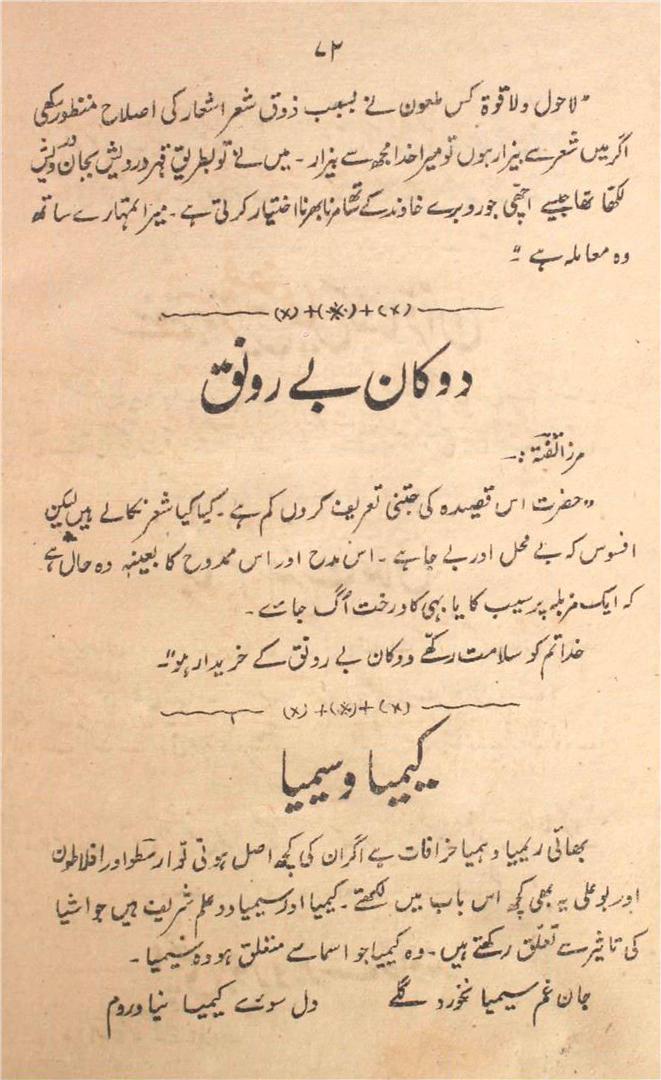 ۷۲
"لاحول ولا قوۃ کس ملعون نے بسبب ذوق شعر اشعار کی اصلاح منظور رکھی
اگر میں شعر سے بیزار ہوں تو میرا خدا مجھ سے بیزار ۔ میں نے تو بطریق قہر درویش بجان درویش
لکھا تھا جیسے اچھی جورو برے خاوند کے ساتھ مرنا بھرنا اختیار کرتی ہے ۔ میرا تمہارے ساتھ
وہ معاملہ ہے ۔"
(×)+(※)+(×)
دوکان بے رونق
مرزا تفتہ :۔
"حضرت اس قصیدہ کی جتنی تعریف کروں کم ہے ۔ کیا کیا شعر نکالے ہیں لیکن
افسوس کہ بے محل اور بے جا ہے ۔ اس مدح اور اس ممدوح کا بعینہ وہ حال ہے
کہ ایک مزبلہ پر سیب کا یا بہی کا درخت اُگ جائے ۔
خدا تم کو سلامت رکھے دوکان بے رونق کے خریدار ہو"۔
(×)+(※)+(×)
کیمیا و سیمیا
بھائی ریمیا و ہمیا خرافات ہے اگر ان کی کچھ اصل ہوتی تو ارسطو اور افلاطون
اور بو علی یہ بھی کچھ اس باب میں لکھتے ۔ کیمیا اور سیمیا دو علم شریف ہیں جو اشیا
کی تاثیر سے تعلق رکھتے ہیں ۔ وہ کیمیا جو اسما سے متعلق ہو وہ سیمیا ۔
جان غم سیمیا نخورد گہے دل سوئے کیمیا نیاوروم